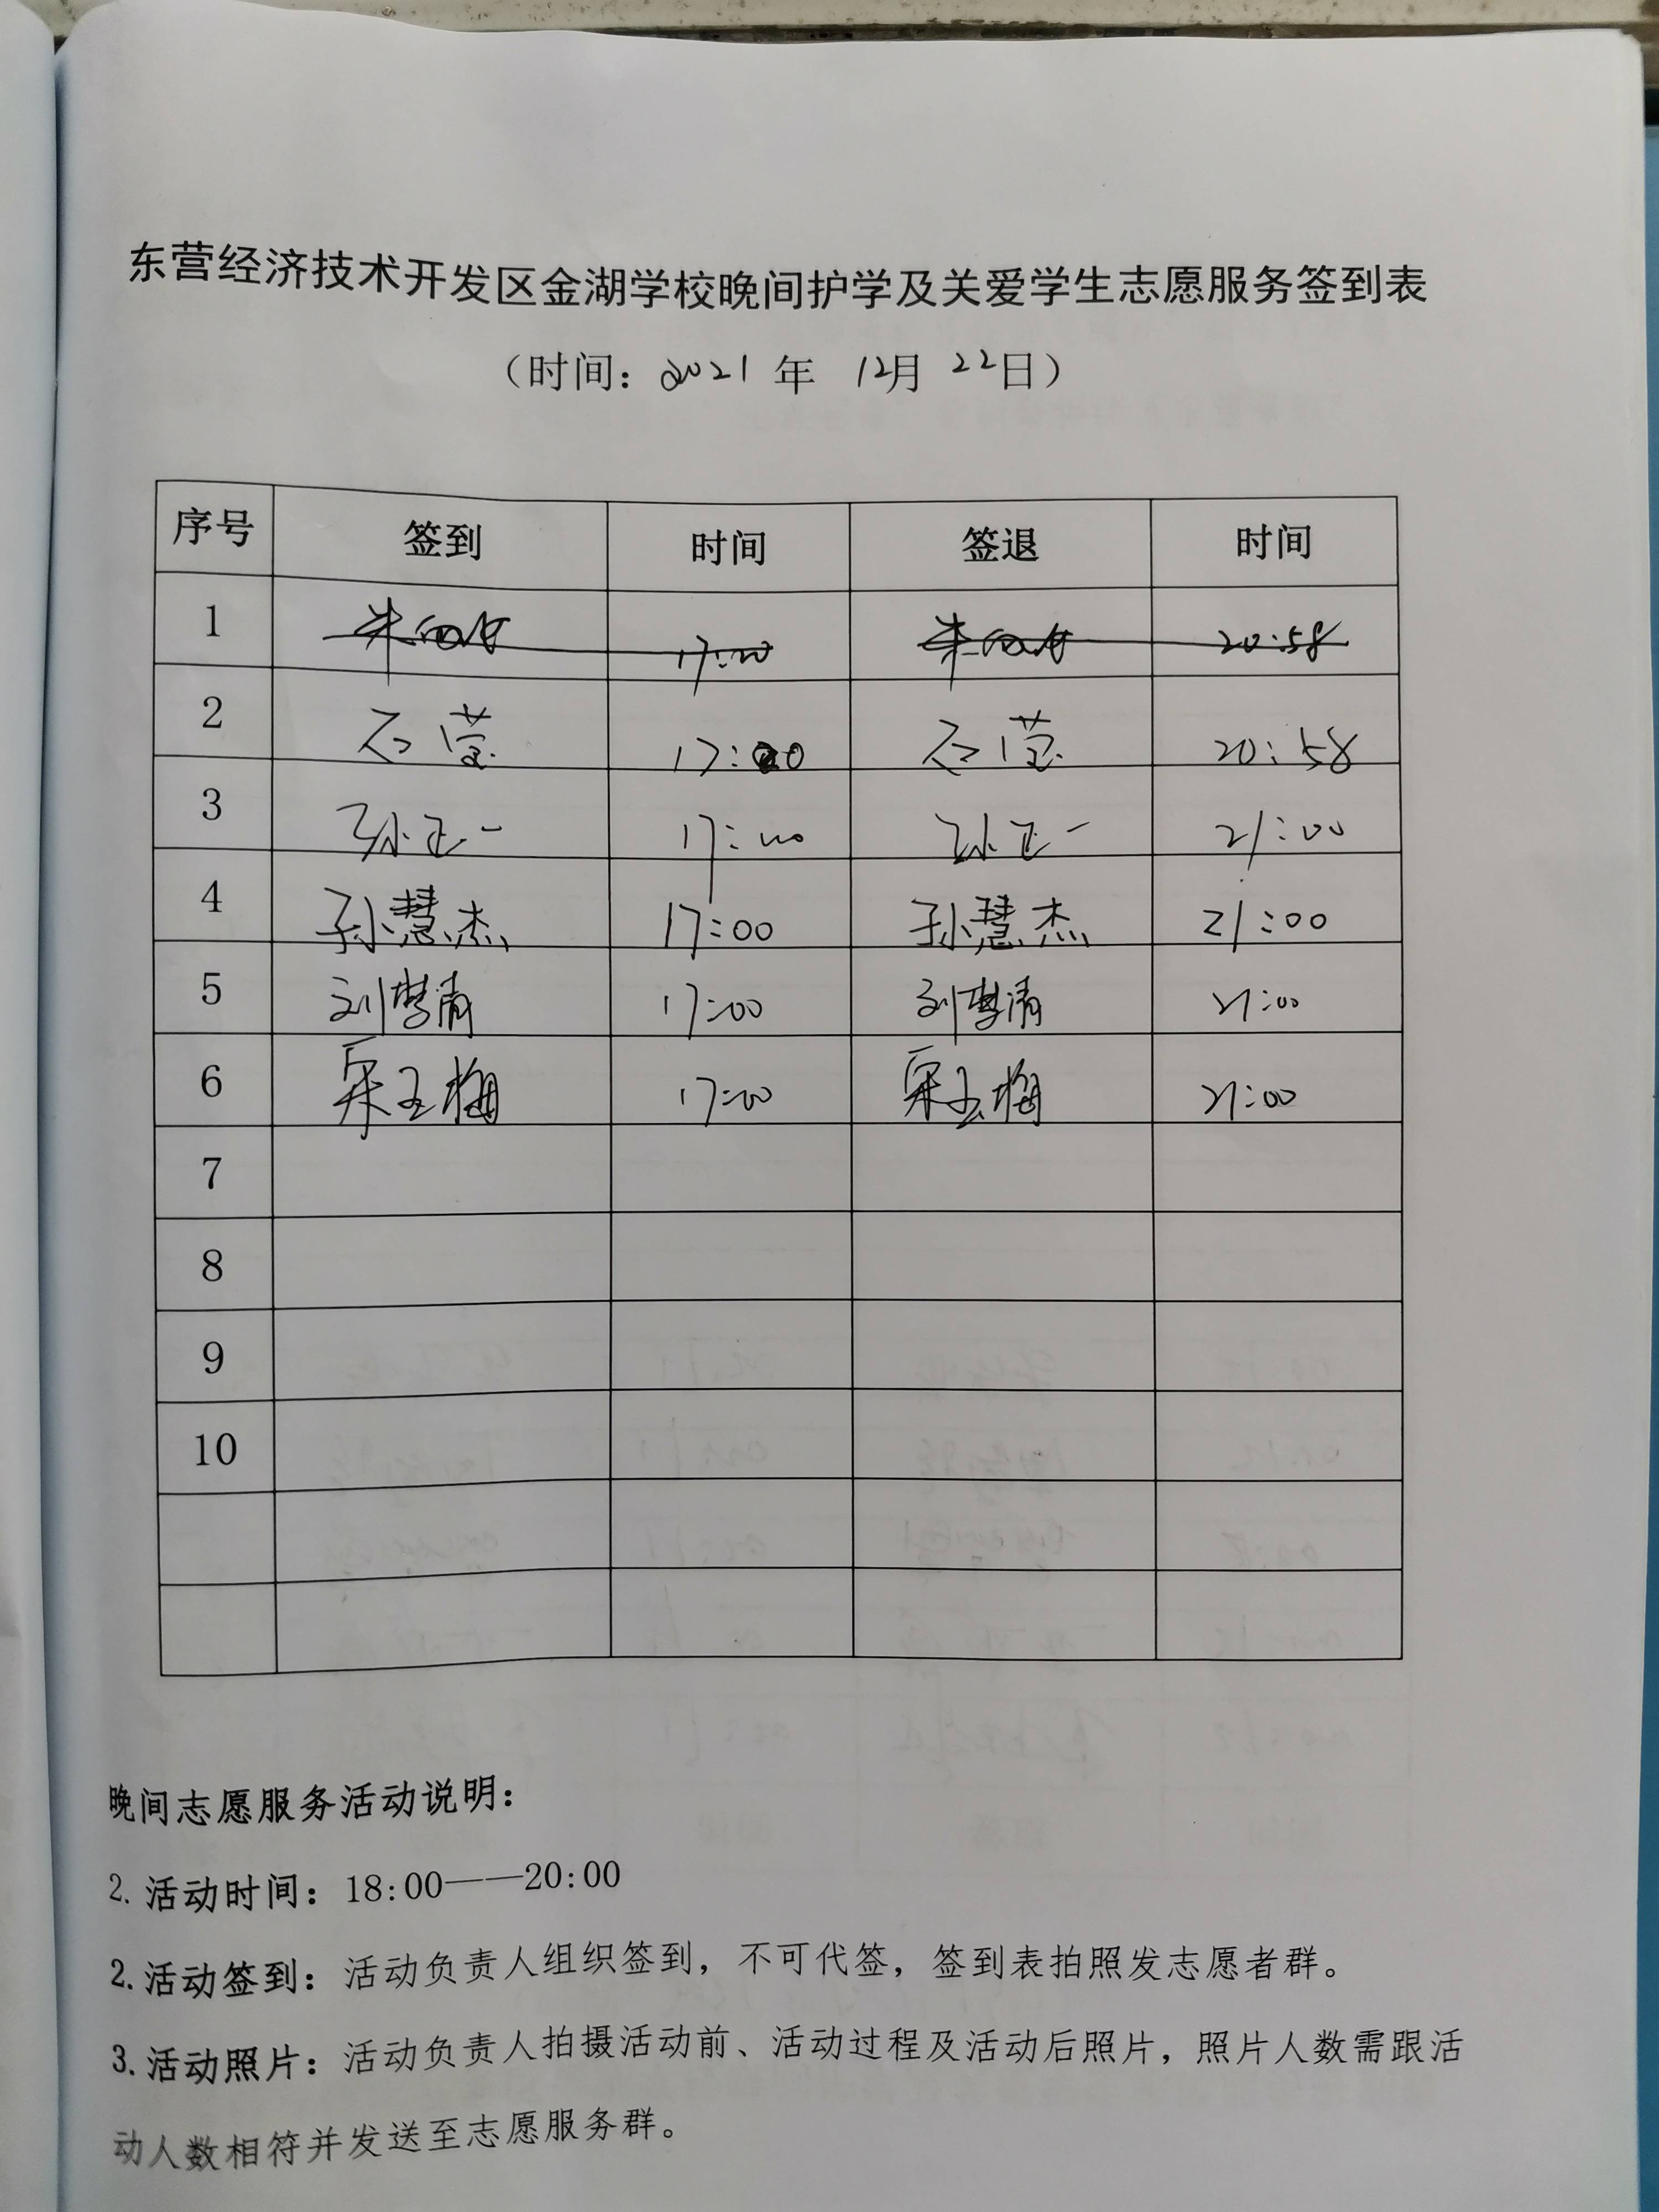 东营经济技术开发区金湖学校晚间护学及关爱学生志愿服务签到表
（时间：2021 年 12月 22日）
序号 签到 时间 签退 时间
1 17:00 20:58
2 石莹 17:00 石莹 20:58
3 孙正一 17:00 孙正一 21:00
4 孙慧杰 17:00 孙慧杰 21:00
5 刘梦清 17:00 刘梦清 21:00
6 宋玉梅 17:00 宋玉梅 21:00
7
8
9
10
晚间志愿服务活动说明：
2. 活动时间：18:00——20:00
2. 活动签到：活动负责人组织签到，不可代签，签到表拍照发志愿者群。
3. 活动照片：活动负责人拍摄活动前、活动过程及活动后照片，照片人数需跟活
动人数相符并发送至志愿服务群。